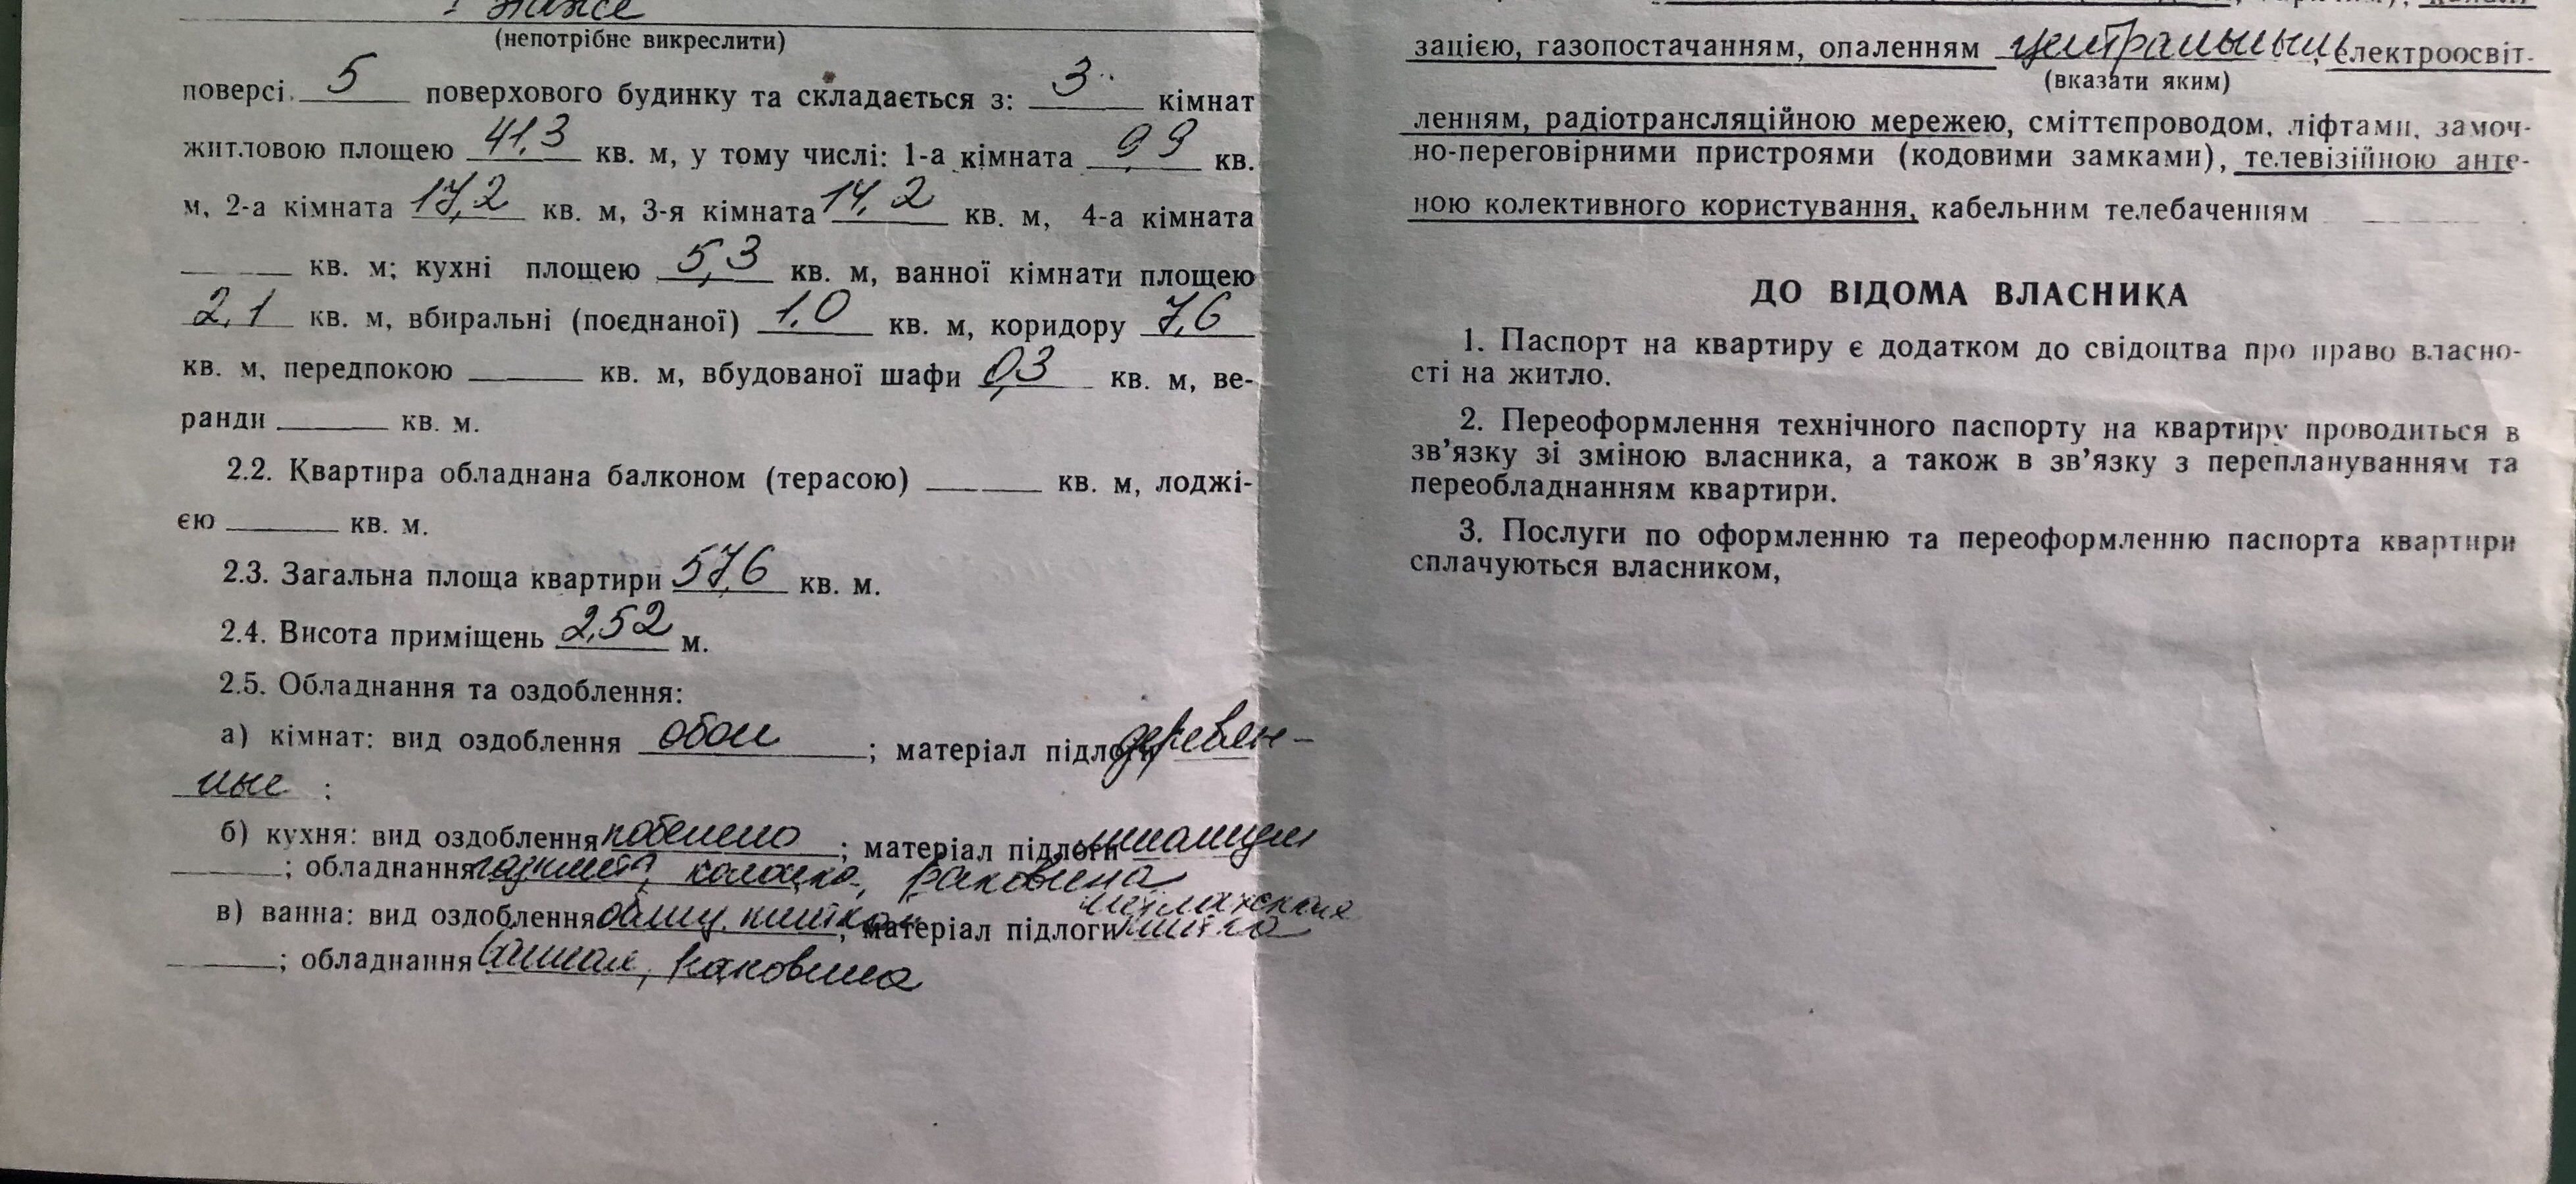 І этаже
(непотрібне викреслити)
поверсі 5 поверхового будинку та складається з: 3 кімнат
житловою площею 41,3 кв. м, у тому числі: 1-а кімната 9,9 кв.
м, 2-а кімната 17,2 кв. м, 3-я кімната 14,2 кв. м, 4-а кімната
кв. м; кухні площею 5,3 кв. м, ванної кімнати площею
2,1 кв. м, вбиральні (поєднаної) 1,0 кв. м, коридору 7,6
кв. м, передпокою кв. м, вбудованої шафи 0,3 кв. м, ве-
ранди кв. м.
2.2. Квартира обладнана балконом (терасою) кв. м, лоджі-
єю кв. м.
2.3. Загальна площа квартири 57,6 кв. м.
2.4. Висота приміщень 2,52 м.
2.5. Обладнання та оздоблення:
а) кімнат: вид оздоблення обои ; матеріал підлоги деревян-
ные :
б) кухня: вид оздоблення побелено ; матеріал підлоги
; обладнання газплита, колонка, раковина
в) ванна: вид оздоблення облиц. плитка ; матеріал підлоги метлахская
плитка
; обладнання ванная, раковина
зацією, газопостачанням, опаленням центральным, електроосвіт-
(вказати яким)
ленням, радіотрансляційною мережею, сміттєпроводом, ліфтами, замоч-
но-переговірними пристроями (кодовими замками), телевізійною анте-
ною колективного користування, кабельним телебаченням
ДО ВІДОМА ВЛАСНИКА
1. Паспорт на квартиру є додатком до свідоцтва про право власно-
сті на житло.
2. Переоформлення технічного паспорту на квартиру проводиться в
зв’язку зі зміною власника, а також в зв’язку з переплануванням та
переобладнанням квартири.
3. Послуги по оформленню та переоформленню паспорта квартири
сплачуються власником,